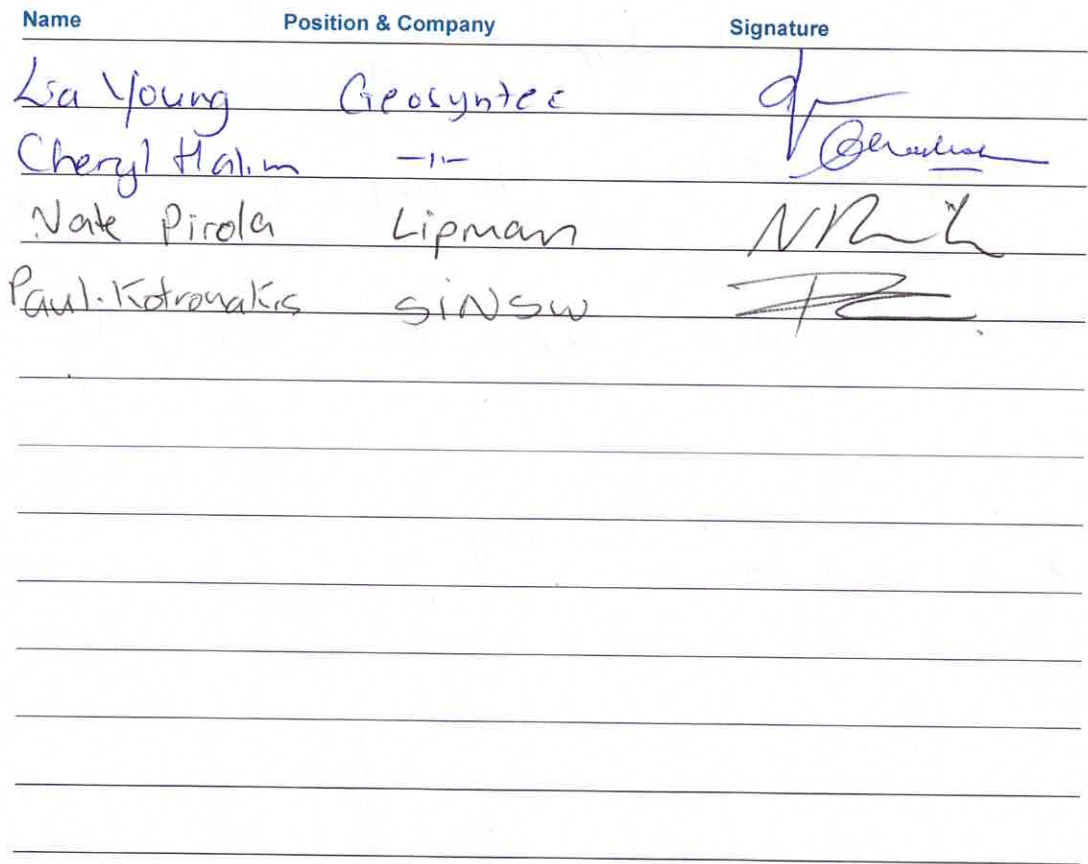 Name Position & Company Signature
Lia Young Geosyntec
Cheryl Halim -11-
Nate Pirola Lipman
Paul.Kotronakis SiNSW